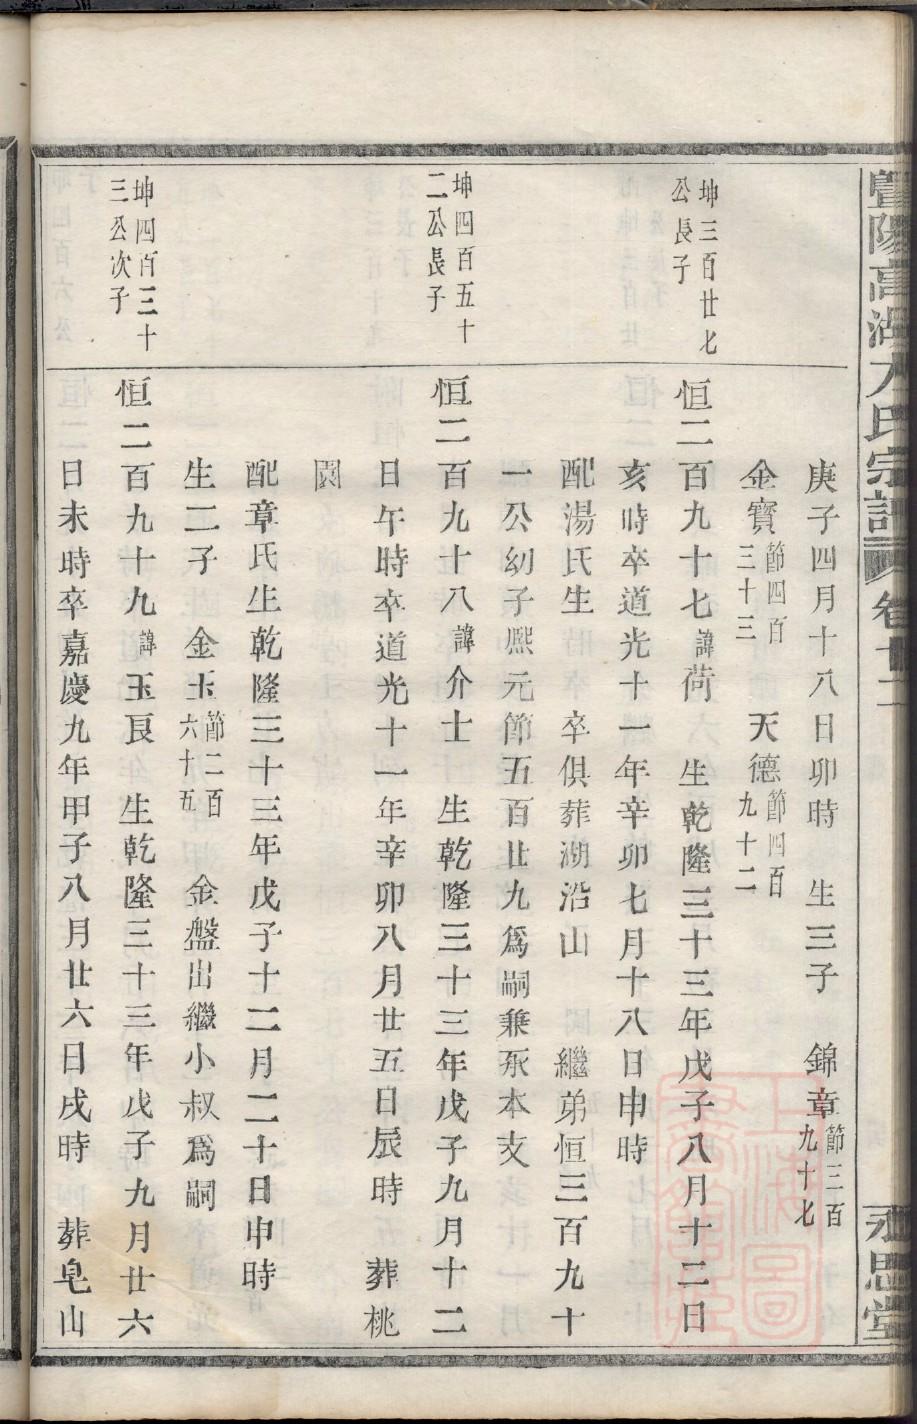 暨陽高湖 氏宗譜 卷十二 永思堂
庚子四月十八日卯時 生三子 錦章節三百九十七
金寳節四百三十三 天德節四百九十二
坤三百廿七公長子
恒二百九十七諱荷 生乾隆三十三年戊子八月十二日
亥時卒道光十一年辛卯七月十八日申時
配湯氏生 卒俱葬湖沿山 繼弟恒三百九十
一公幼子熙元節五百廿九爲嗣兼承本支
坤四百五十二公長子
恒二百九十八諱介士 生乾隆三十三年戊子九月十二
日午時卒道光十一年辛卯八月廿五日辰時 葬桃
園
配章氏生乾隆三十三年戊子十二月二十日申時
生二子 金玉節二百六十五 金盤出繼小叔爲嗣
坤四百三十三公次子
恒二百九十九諱玉良 生乾隆三十三年戊子九月廿六
日未時卒嘉慶九年甲子八月廿六日戌時 葬皂山